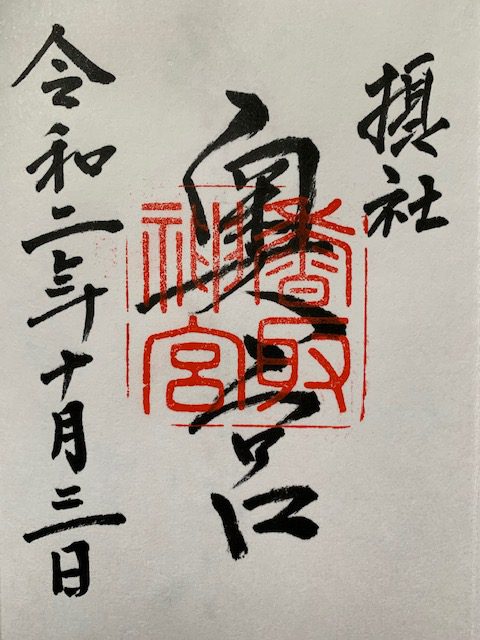 摂社
奥宮
香取
神宮
令和二年十月三日